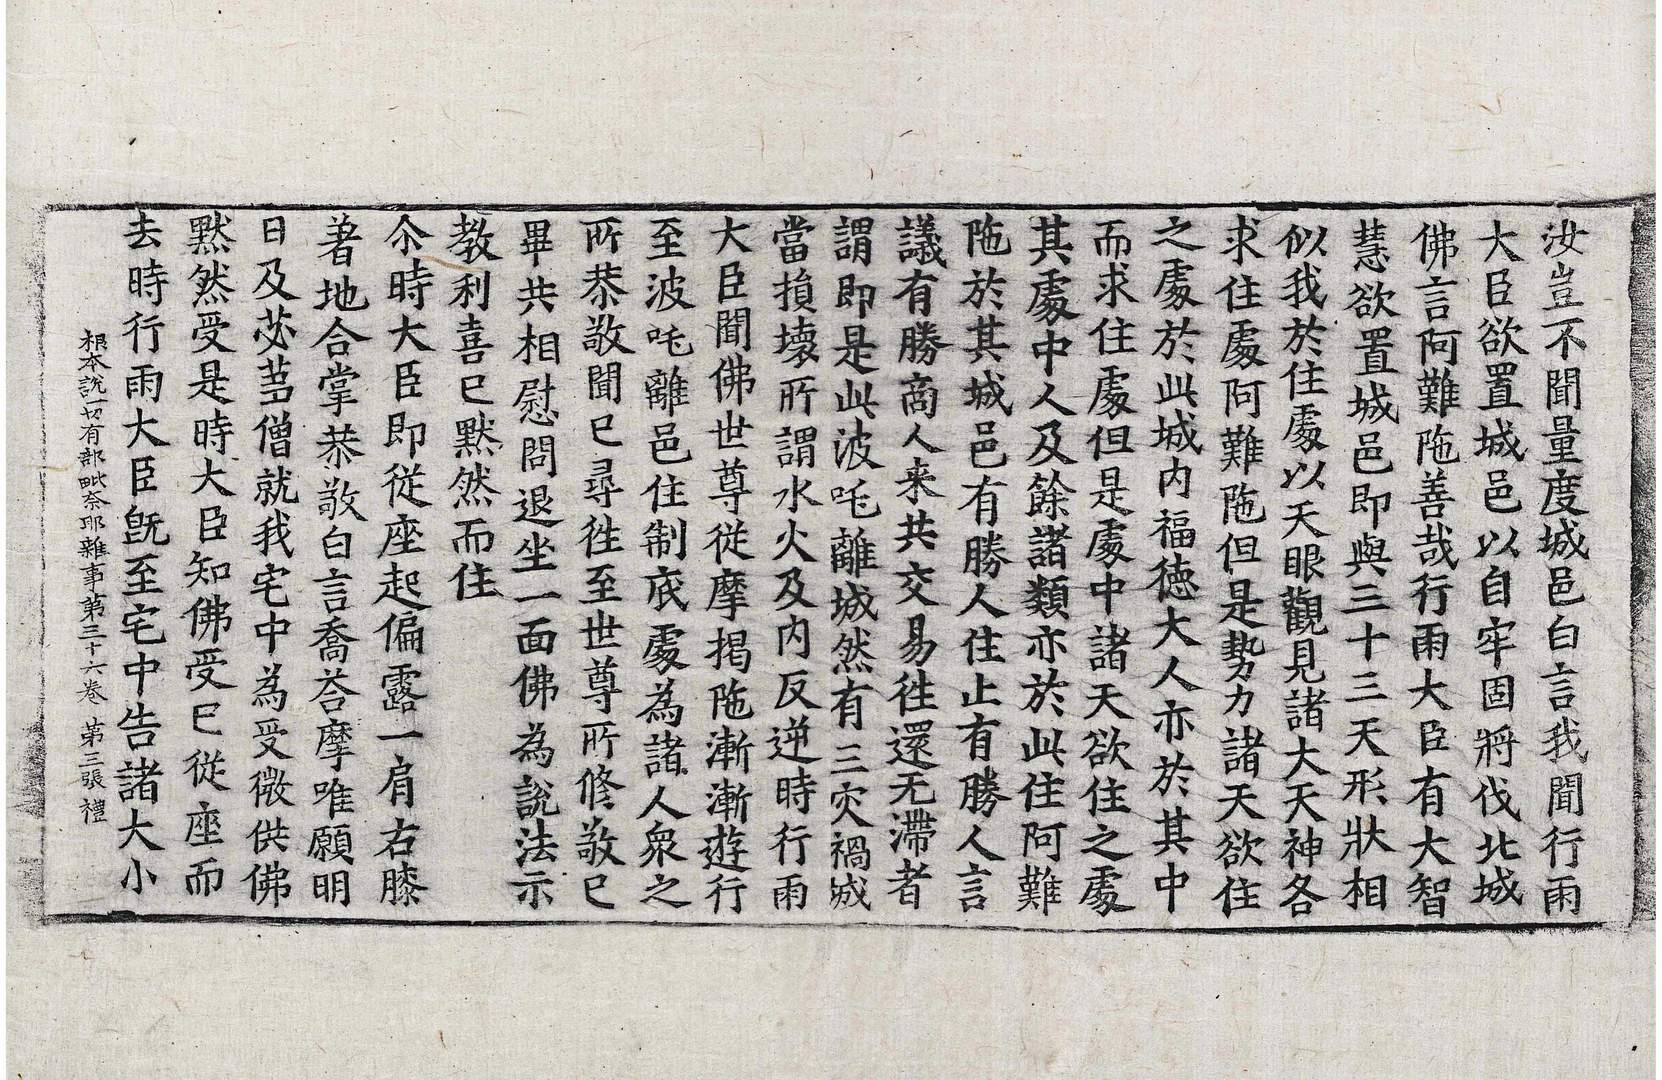 汝豈不聞量度城邑白言我聞行雨
大臣欲置城邑以自牢固將伐北城
佛言阿難陁善哉行雨大臣有大智
慧欲置城邑即與三十三天形狀相
似我於住處以天眼觀見諸大天神各
求住處阿難陁但是勢力諸天欲住
之處於此城内福德大人亦於其中
而求住處但是處中諸天欲住之處
其處中人及餘諸類亦於此住阿難
陁於其城邑有勝人住止有勝人言
議有勝商人来共交易往還无滯者
謂即是此波吒離城然有三灾禍城
當損壞所謂水火及内反逆時行雨
大臣聞佛世尊従摩掲陁漸漸遊行
至波吒離邑住制底處為諸人衆之
所恭敬聞已尋往至世尊所修敬已
畢共相慰問退坐一面佛為說法示
教利喜已黙然而住
尒時大臣即從座起偏露一肩右膝
著地合掌恭敬白言喬荅摩唯願明
日及苾芻僧就我宅中為受微供佛
黙然受是時大臣知佛受已從座而
去時行雨大臣旣至宅中告諸大小
根本說一切有部毗奈耶雜事第三十六卷 第三張 禮